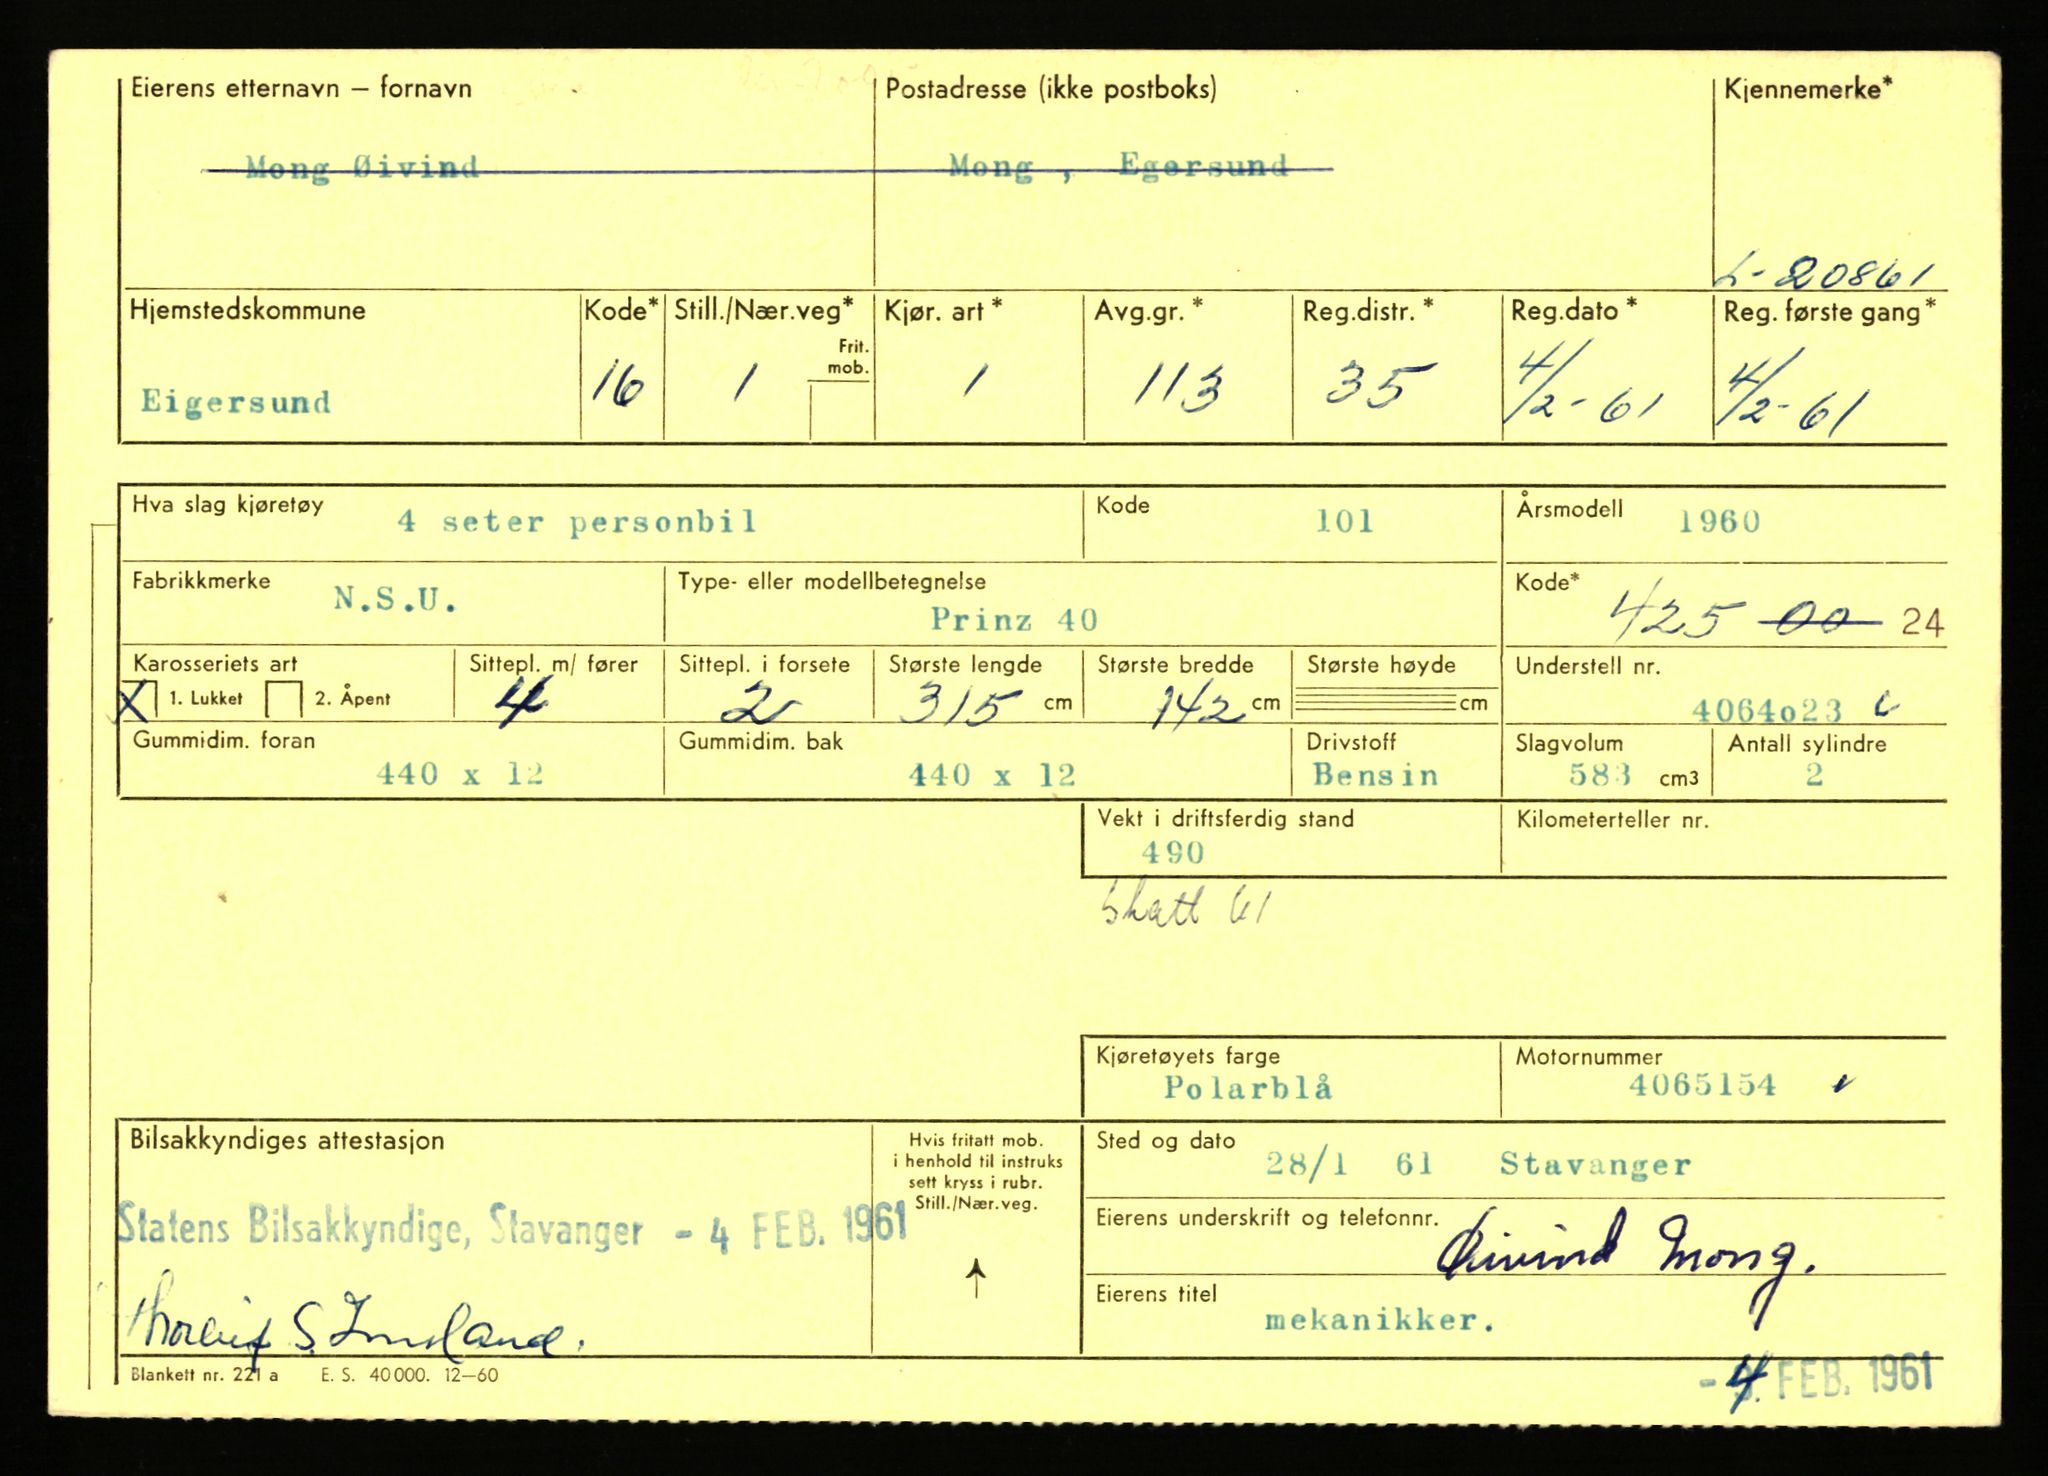 Eierens etternavn – fornavn Postadresse (ikke postboks) Kjennemerke*
Mong Øivind Mong , Egersund
L- 20861
Hjemstedskommune Kode* Still./Nær.veg* Kjør. art * Avg.gr. * Reg.distr. * Reg.dato * Reg. første gang *
Frit. mob.
Eigersund 16 1 1 113 35 4/2-61 4/2-61
Hva slag kjøretøy 4 seter personbil Kode 101 Årsmodell 1960
Fabrikkmerke N.S.U. Type- eller modellbetegnelse Prinz 40 Kode* 425 00 24
Karosseriets art Sittepl. m/ fører Sittepl. i forsete Største lengde Største bredde Største høyde Understell nr.
X 1. Lukket 2. Åpent 4 2 315 cm 142 cm cm 4064o23
Gummidim. foran Gummidim. bak Drivstoff Slagvolum Antall sylindre
440 x 12 440 x 12 Bensin 583 cm3 2
Vekt i driftsferdig stand Kilometerteller nr.
490
Skatt 61
Kjøretøyets farge Motornummer
Polarblå 4065154
Bilsakkyndiges attestasjon
Hvis fritatt mob.
i henhold til instruks
sett kryss i rubr.
Still./Nær.veg.
Sted og dato 28/1 61 Stavanger
Statens Bilsakkyndige, Stavanger - 4 FEB. 1961
Eierens underskrift og telefonnr. Øivind Mong.
Eierens titel
mekanikker.
Blankett nr. 221 a E. S. 40 000. 12—60
- 4. FEB. 1961